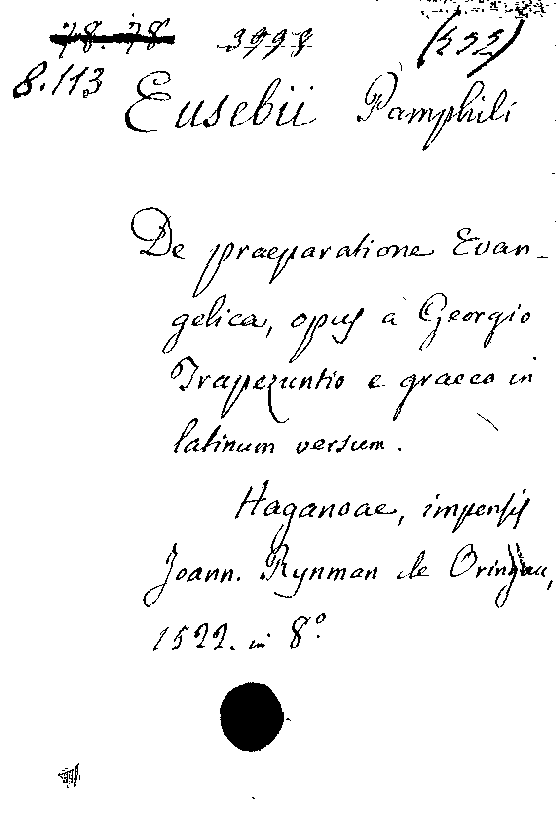 78.78 3998 (552)
8.113
Eusebii Pamphili
De praeparatione Evan-
gelica, opus à Georgio
Trapezuntio e graeco in
latinum versum.
Haganoae, impensis
Joann. Rynman de Oringau,
1522. in 8º